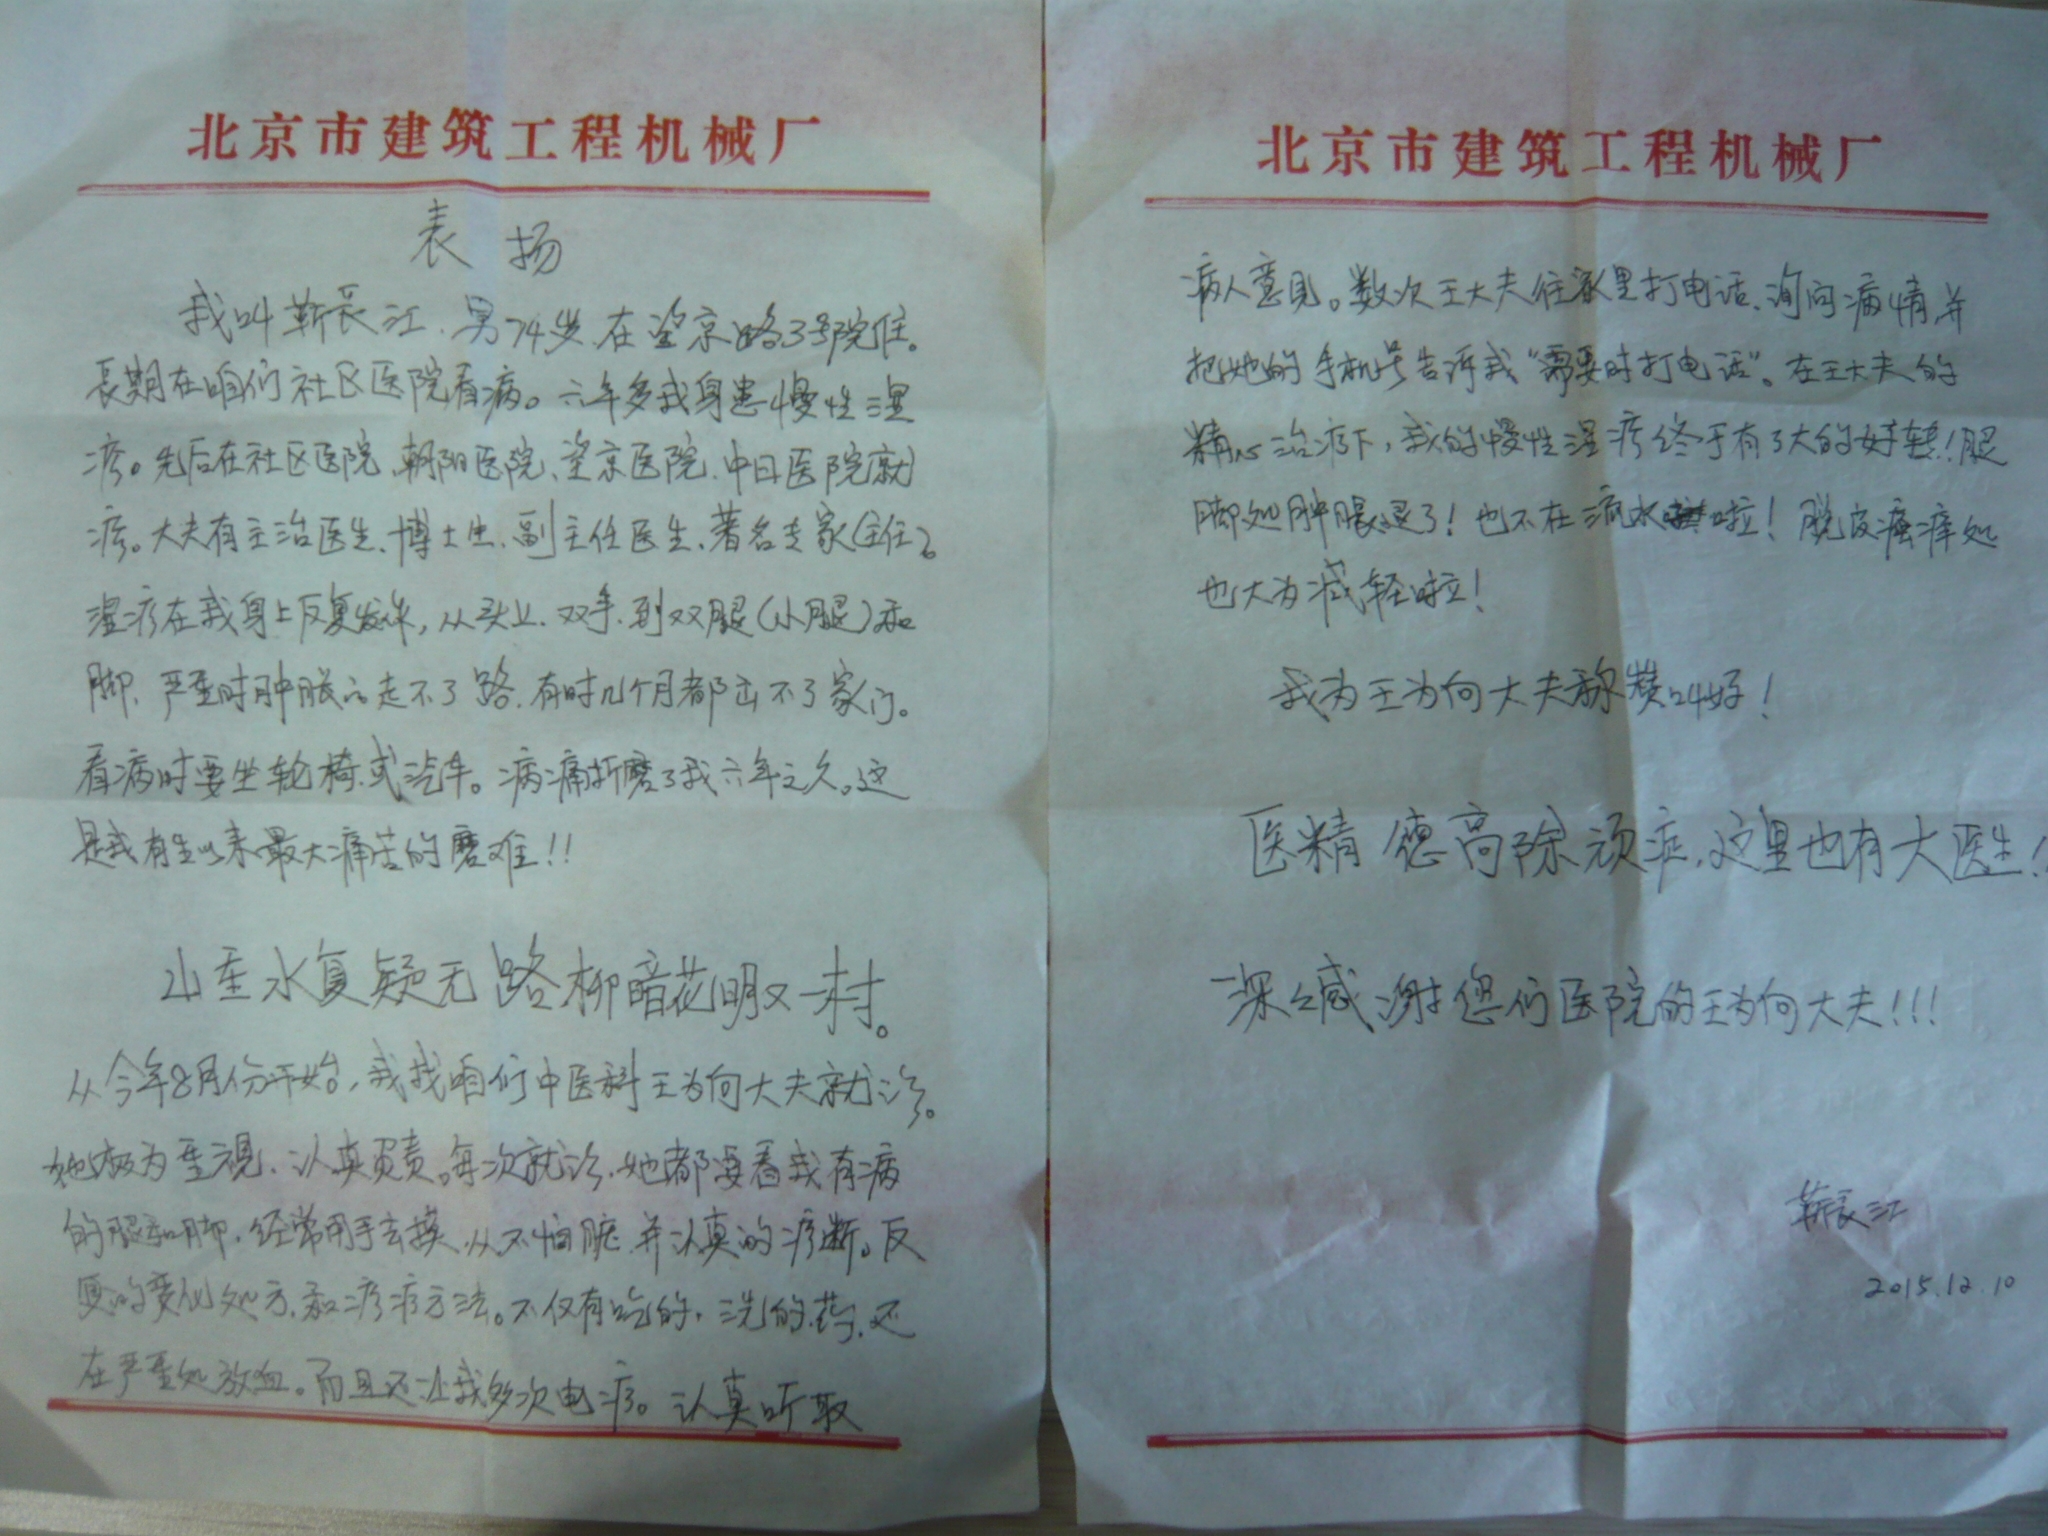 北京市建筑工程机械厂
表扬
我叫靳长江、男74岁、在望京路3号院住。
长期在咱们社区医院看病。六年多我身患慢性湿
疹。先后在社区医院、朝阳医院、望京医院、中日医院就
疹。大夫有主治医生、博士生、副主任医生、著名专家(主任)。
湿疹在我身上反复发作，从头上、双手、到双腿(小腿)和
脚，严重时肿胀的走不了路、有时几个月都出不了家门。
看病时要坐轮椅或汽车。病痛折磨了我六年之久。这
是我有生以来最大痛苦的磨难!!
山重水复疑无路柳暗花明又一村。
从今年8月份开始，我找咱们中医科王为向大夫就诊。
她极为重视、认真负责。每次就诊、她都要看我有病
的腿和脚，经常用手去摸、从不怕脏、并认真的疹断。反
复的变化处方、和疹疗方法。不仅有吃的、洗的药、还
在严重处放血。而且还让我多次电疗。认真听取
北京市建筑工程机械厂
病人意见。数次王大夫往家里打电话、询问病情，并
把她的手机号告诉我“需要时打电话”。在王大夫的
精心治疗下，我的慢性湿疹终于有了大的好转!腿
脚处肿胀退了! 也不在流水啦! 脱皮瘙痒处
也大为减轻啦!
我为王为向大夫称赞叫好!
医精德高除顽症，这里也有大医生!
深深感谢您们医院的王为向大夫!!!
靳长江
2015.12.10